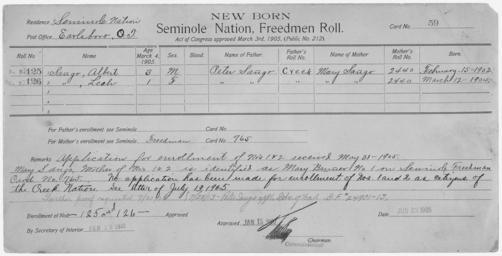 NEW BORN
Residence Seminole Nation
Seminole Nation, Freedmen Roll.
Card No. 59
Post Office Earlsboro, O.T.
Act of Congress approved March 3rd, 1905, (Public No. 212).
Roll No. Name Age March 4, 1905. Sex. Blood. Name of Father Father's Roll No. Name of Mother Mother's Roll No. Born.
125 Sango, Albert 3 M Peter Sango Creek Mary Sango 2440 February-15-1902
126 " , Leah 1 F " " " " 2440 March-12-1904
For Father's enrollment see Seminole Card No.
For Mother's enrollment see Seminole Freedman Card No. 765
Remarks Application for enrollment of Nos 1&2 received May 23-1905.
Mary Sango, Mother of Nos 1&2 is identified as Mary No. 1 on Seminole Freedman
Card No. 765. No application has been made for enrollment of Nos. 1 and 2 as citizens of
the Creek Nation. See letter of July 19, 1905
Enrollment of Nos 125 and 126 Approved
By Secretary of Interior
Approved JAN 13
Chairman
Commissioner
Date JUN 23 1905